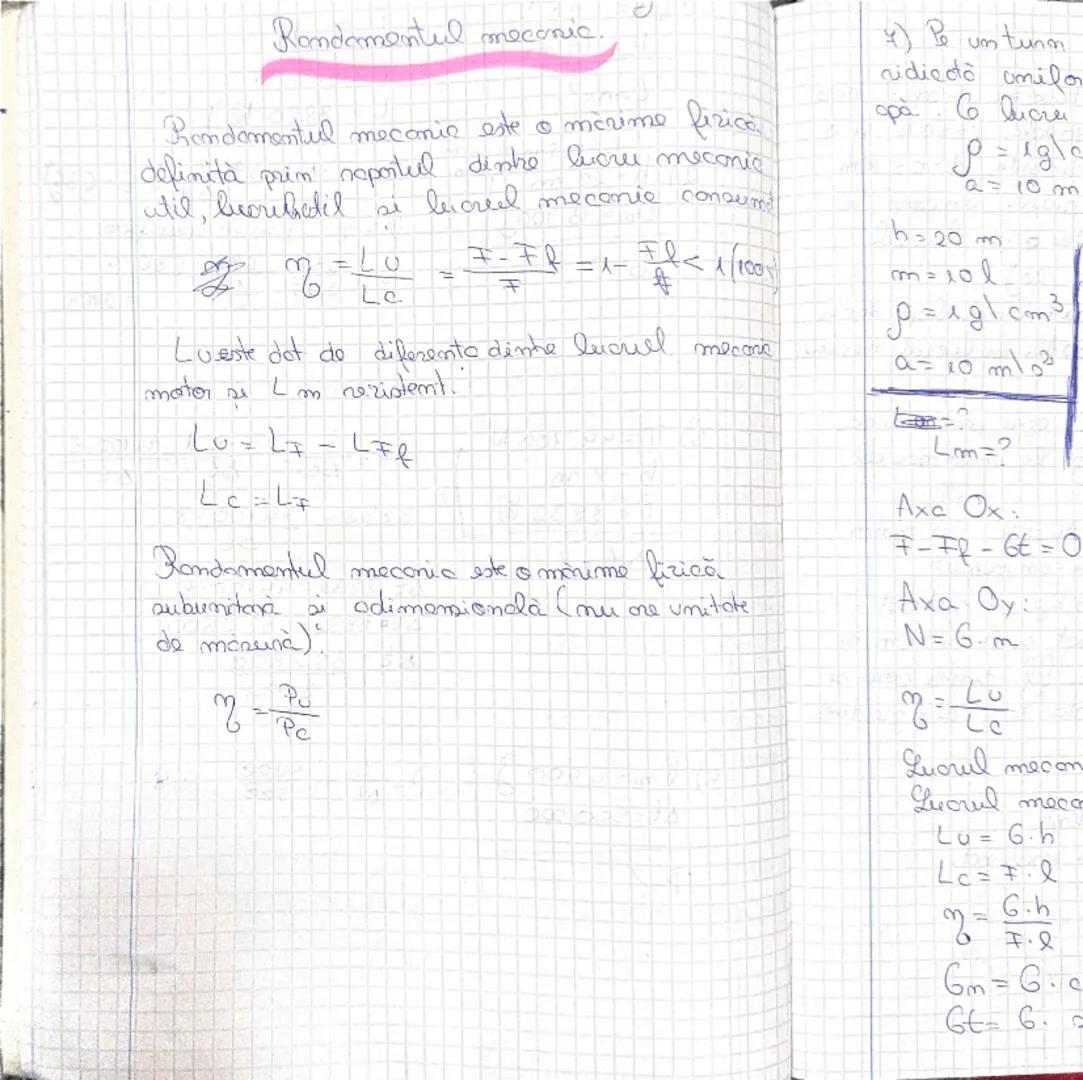 Randamentul mecanic.
Randamentul mecanic este o mărime fizică
definită prin raportul dintre lucru mecanic
util, și lucrul mecanic consumat
η = Lu/Lc = F-Ff/F = 1- Ff/F < 1 (100%)
Lu este dat de diferența dintre lucrul mecanic
motor și L m rezistent.
Lu = LF - LFf
Lc = LF
Randamentul mecanic este o mărime fizică
subunitară și adimensională (nu are unitate
de măsură).
η = Pu/Pc
Pe un turn
ridică unifor
apă. G lucru
ρ = 1g\c
a = 10 m
h = 20 m
m = 10 l
ρ = 1g\cm³
a = 10 m\s²
Lm = ?
Axa Ox:
F-Ff-Gt = 0
Axa Oy:
N = G·n
η = Lu/Lc
Lucrul mecan
Lucrul meca
Lu = G·h
Lc = F·l
η = G·h/F·l
Gn = G·c
Gt = G·